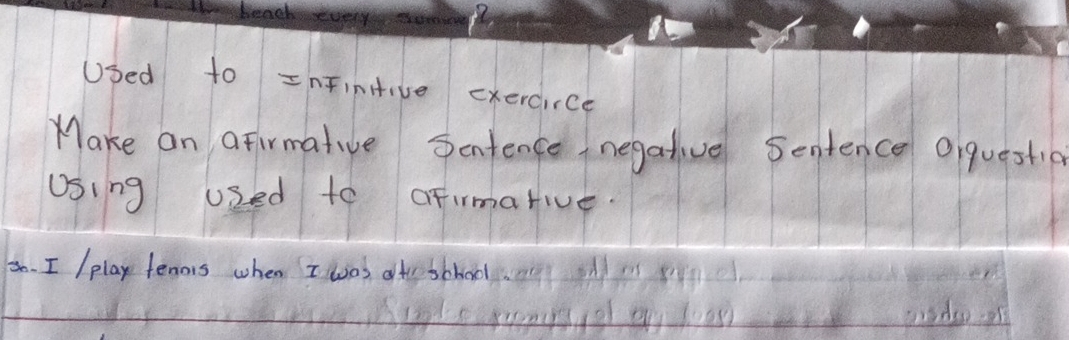 the beach every summer?
Used to Infinitive exercirce
Make an afirmative Sentence, negative Sentence Or question
Using used to afirmative.
I /play tennis when I was at school.